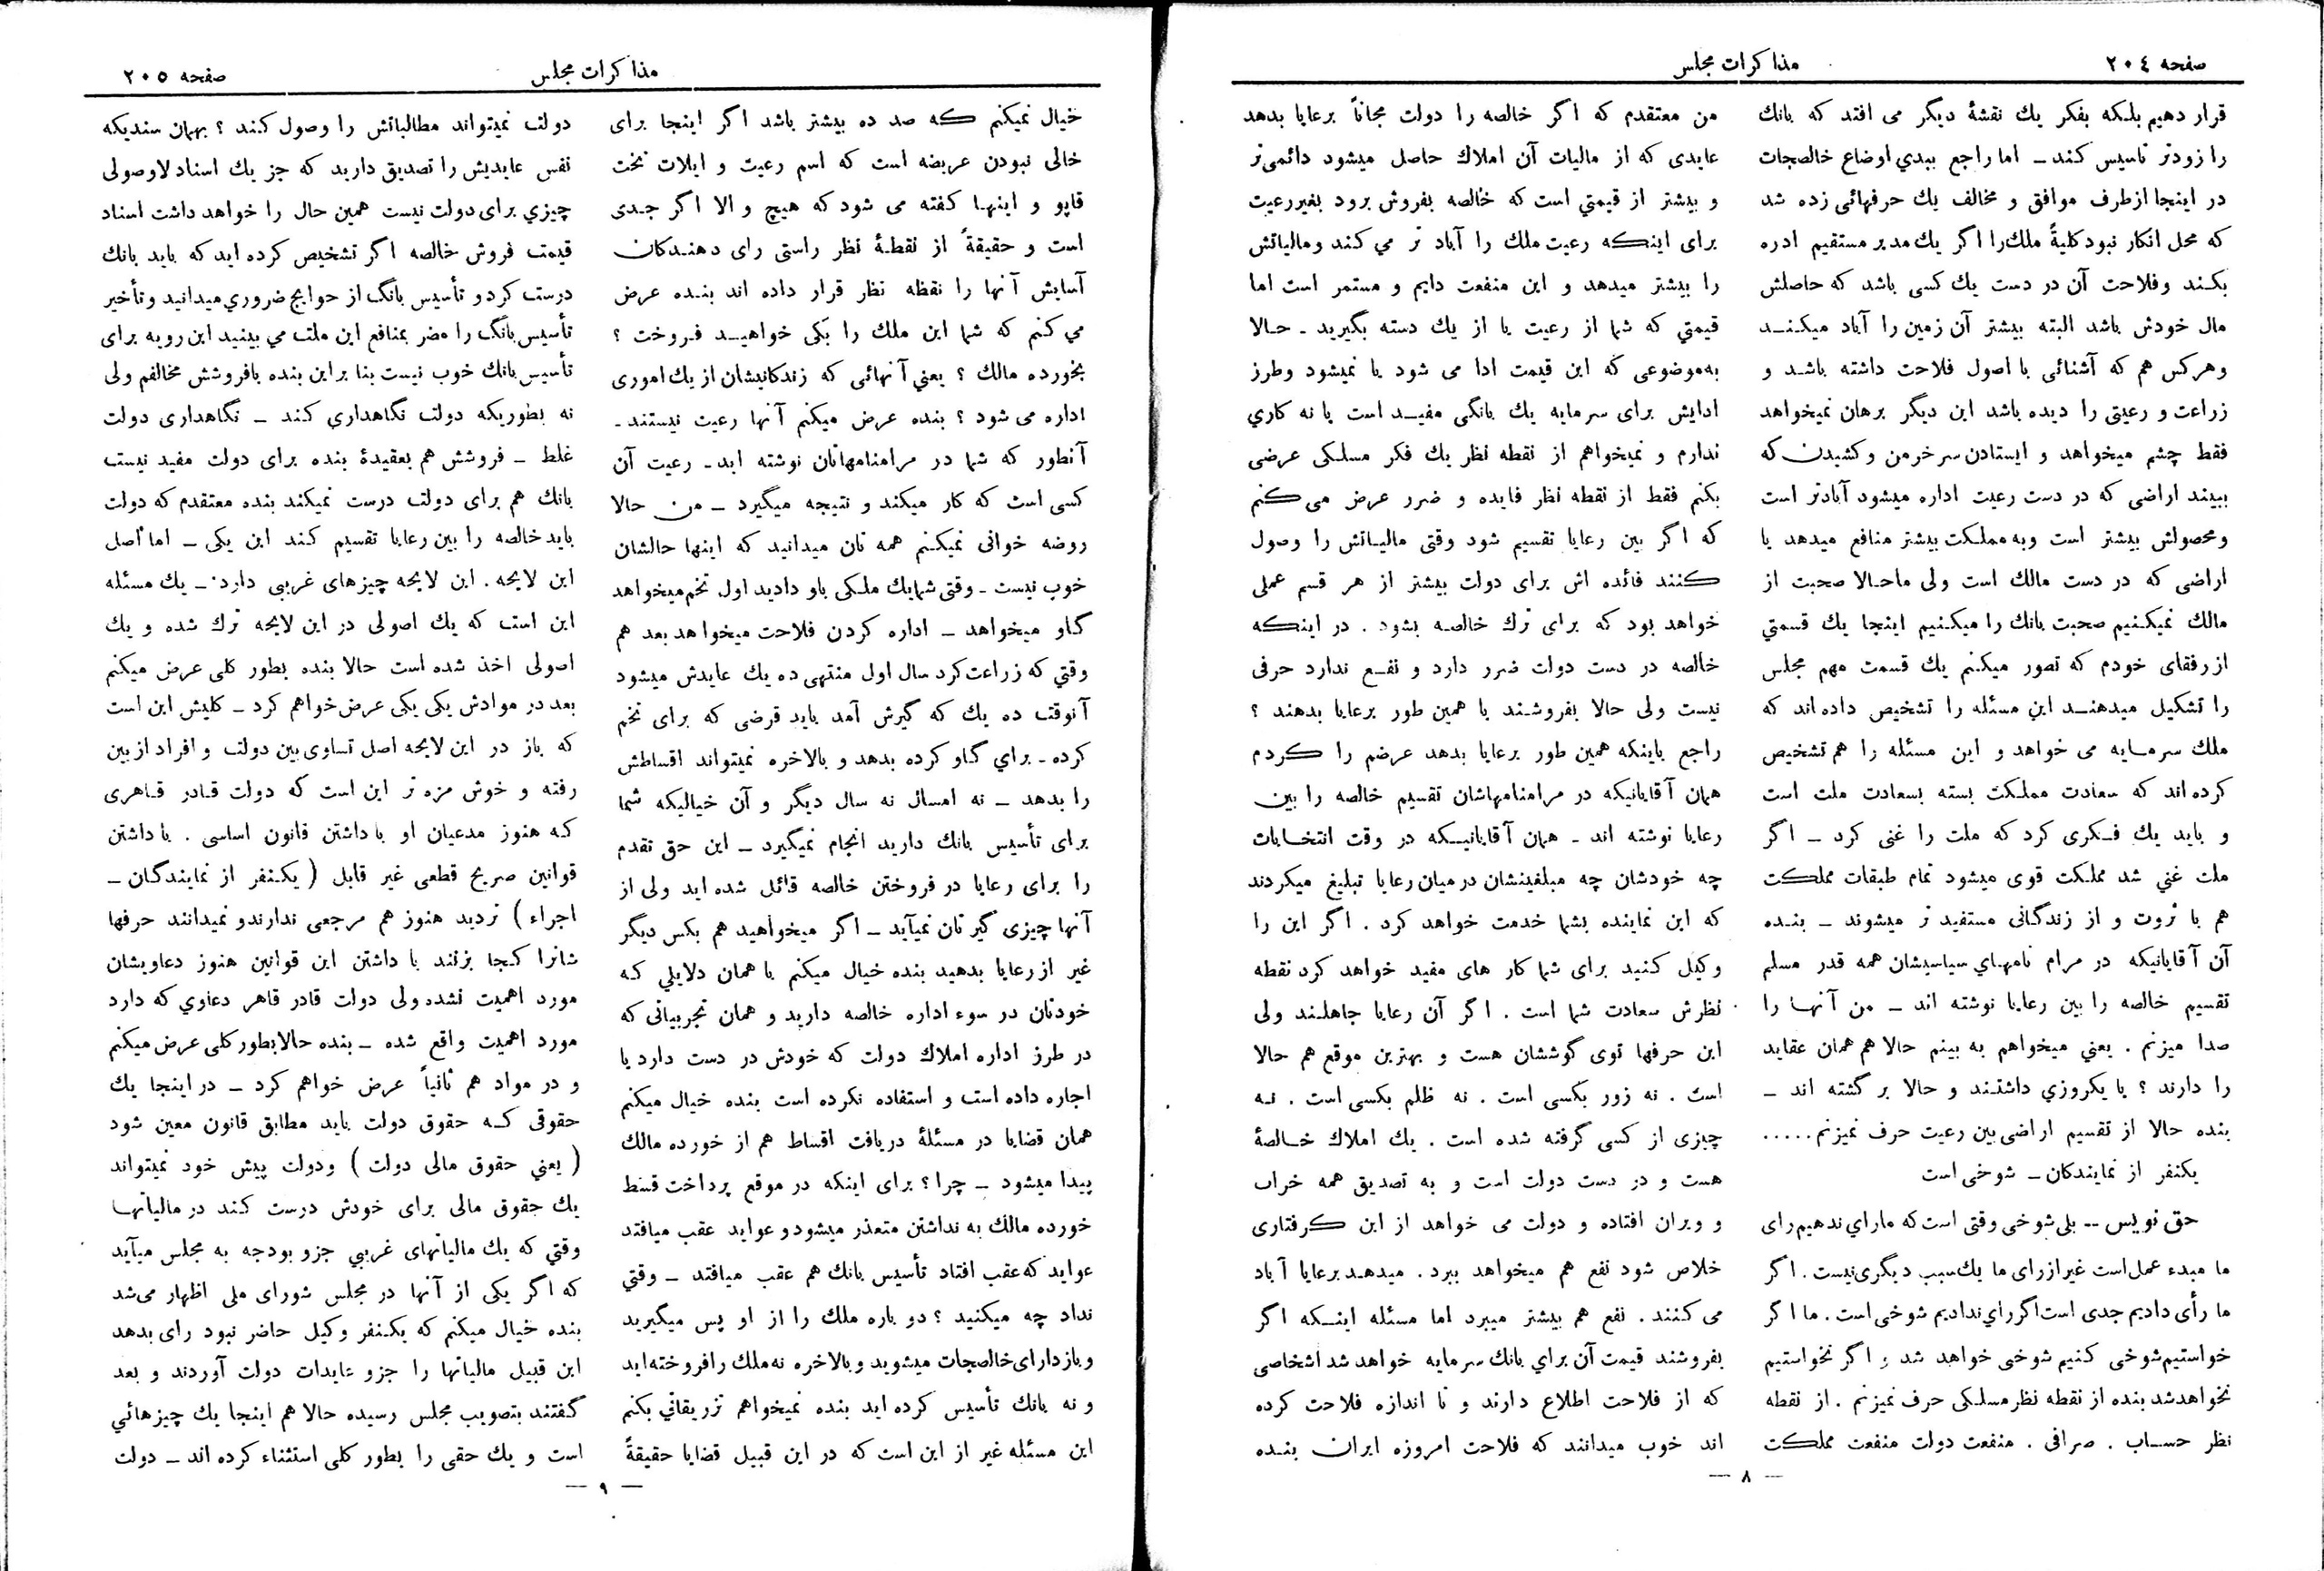 صفحه ٢٠٤
مذاكرات مجلس
قرار دهيم بلكه بفكر يك نقشۀ ديگر می افتد كه بانك
را زودتر تاسيس كند ــ اما راجع ببدي اوضاع خالصجات
در اينجا از طرف موافق و مخالف يك حرفهائی زده شد
كه محل انكار نبود كليةً ملك را اگر يك مدير مستقيم ادره
بكند و فلاحت آن در دست يك كسی باشد كه حاصلش
مال خودش باشد البته بيشتر آن زمين را آباد ميكند
و هركس هم كه آشنائی با اصول فلاحت داشته باشد و
زراعت و رعيتی را ديده باشد اين ديگر برهان نميخواهد
فقط چشم ميخواهد و ايستادن سر خرمن و كشيدن كه
ببيند اراضی كه در دست رعيت اداره ميشود آبادتر است
و محصولش بيشتر است و به مملكت بيشتر منافع ميدهد يا
اراضی كه در دست مالك است ولی ما حالا صحبت از
مالك نميكنيم صحبت بانك را ميكنيم اينجا يك قسمتي
از رفقای خودم كه تصور ميكنم يك قسمت مهم مجلس
را تشكيل ميدهند اين مسئله را تشخيص داده اند كه
ملك سرمايه می خواهد و اين مسئله را هم تشخيص
كرده اند كه سعادت مملكت بسته بسعادت ملت است
و بايد يك فكری كرد كه ملت را غنی كرد ــ اگر
ملت غني شد مملكت قوی ميشود تمام طبقات مملكت
هم با ثروت و از زندگانی مستفيد تر ميشوند ــ بنده
آن آقايانيكه در مرام نامهاي سياسيشان همه قدر مسلم
تقسيم خالصه را بين رعايا نوشته اند ــ من آنها را
صدا ميزنم . يعني ميخواهم به بينم حالا هم همان عقايد
را دارند ؟ يا يكروزي داشتند و حالا بر گشته اند ــ
بنده حالا از تقسيم اراضی بين رعيت حرف نميزنم .....
يكنفر از نمايندگان ــ شوخی است
حق نويس -- بلی شوخی وقتی است كه ما راي ندهيم رای
ما مبدء عمل است غير از رای ما يك سبب ديگری نيست . اگر
ما رأی داديم جدی است اگر راي نداديم شوخی است . ما اگر
خواستيم شوخی كنيم شوخی خواهد شد و اگر نخواستيم
نخواهد شد بنده از نقطه نظر مسلكی حرف نميزنم . از نقطه
نظر حساب . صرافی . منفعت دولت منفعت مملكت
من معتقدم كه اگر خالصه را دولت مجاناً برعايا بدهد
عايدی كه از ماليات آن املاك حاصل ميشود دائمی تر
و بيشتر از قيمتي است كه خالصه بفروش برود بغير رعيت
برای اينكه رعيت ملك را آباد تر مي كند و مالياتش
را بيشتر ميدهد و اين منفعت دايم و مستمر است اما
قيمتي كه شما از رعيت يا از يك دسته بگيريد ـ حالا
به موضوعی كه اين قيمت ادا می شود يا نميشود و طرز
ادايش برای سرمايه يك بانگی مفيد است يا نه كاري
ندارم و نميخواهم از نقطه نظر يك فكر مسلكی عرضی
بكنم فقط از نقطه نظر فايده و ضرر عرض می كنم
كه اگر بين رعايا تقسيم شود وقتی مالياتش را وصول
كنند فائده اش برای دولت بيشتر از هر قسم عملی
خواهد بود كه برای ترك خالصه بشود . در اينكه
خالصه در دست دولت ضرر دارد و نفع ندارد حرفی
نيست ولی حالا بفروشند يا همين طور برعايا بدهند ؟
راجع باينكه همين طور برعايا بدهد عرضم را كردم
همان آقايانيكه در مرامنامهاشان تقسيم خالصه را بين
رعايا نوشته اند ـ همان آقايانيكه در وقت انتخابات
چه خودشان چه مبلغينشان در ميان رعايا تبليغ ميكردند
كه اين نماينده بشما خدمت خواهد كرد . اگر اين را
وكيل كنيد برای شما كار های مفيد خواهد كرد نقطه
نظرش سعادت شما است . اگر آن رعايا جاهلند ولی
اين حرفها توی گوششان هست و بهترين موقع هم حالا
است . نه زور بكسی است . نه ظلم بكسی است . نه
چيزی از كسی گرفته شده است . يك املاك خالصۀ
هست و در دست دولت است و به تصديق همه خراب
و ويران افتاده و دولت می خواهد از اين گرفتاری
خلاص شود نفع هم ميخواهد ببرد . ميدهد برعايا آباد
می كنند . نفع هم بيشتر ميبرد اما مسئله اينكه اگر
بفروشند قيمت آن براي بانك سرمايه خواهد شد اشخاصی
كه از فلاحت اطلاع دارند و تا اندازه فلاحت كرده
اند خوب ميدانند كه فلاحت امروزه ايران بنده
— ٨ —
مذاكرات مجلس
صفحه ٢٠٥
خيال نميكنم كه صد ده بيشتر باشد اگر اينجا برای
خالی نبودن عريضه است كه اسم رعيت و ايلات تخت
قاپو و اينها گفته می شود كه هيچ و الا اگر جدی
است و حقيقةً از نقطۀ نظر راستی رای دهندكان
آسايش آنها را نقطه نظر قرار داده اند بنده عرض
مي كنم كه شما اين ملك را بكی خواهيد فروخت ؟
بخورده مالك ؟ يعني آنهائی كه زندكانيشان از يك اموری
اداره می شود ؟ بنده عرض ميكنم آنها رعيت نيستند ـ
آنطور كه شما در مرامنامهاتان نوشته ايد ـ رعيت آن
كسی است كه كار ميكند و نتيجه ميگيرد ــ من حالا
روضه خوانی نميكنم همه تان ميدانيد كه اينها حالشان
خوب نيست ـ وقتی شما يك ملكی باو داديد اول تخم ميخواهد
گاو ميخواهد ــ اداره كردن فلاحت ميخواهد بعد هم
وقتي كه زراعت كرد سال اول منتهی ده يك عايدش ميشود
آنوقت ده يك كه گيرش آمد بايد قرضی كه برای تخم
كرده ـ براي گاو كرده بدهد و بالاخره نميتواند اقساطش
را بدهد ــ نه امسال نه سال ديگر و آن خياليكه شما
برای تأسيس بانك داريد انجام نميگيرد ــ اين حق تقدم
را برای رعايا در فروختن خالصه قائل شده ايد ولی از
آنها چيزی گير تان نميآيد ــ اگر ميخواهيد هم بكس ديگر
غير از رعايا بدهيد بنده خيال ميكنم با همان دلايلي كه
خودتان در سوء اداره خالصه داريد و همان تجربياتی كه
در طرز اداره املاك دولت كه خودش در دست دارد يا
اجاره داده است و استفاده نكرده است بنده خيال ميكنم
همان قضايا در مسئلۀ دريافت اقساط هم از خورده مالك
پيدا ميشود ــ چرا ؟ برای اينكه در موقع پرداخت قسط
خورده مالك به نداشتن متعذر ميشود و عوايد عقب ميافتد
عوايد كه عقب افتاد تأسيس بانك هم عقب ميافتد ــ وقتي
نداد چه ميكنيد ؟ دو باره ملك را از او پس ميگيريد
و باز دارای خالصجات ميشويد و بالاخره نه ملك را فروخته ايد
و نه بانك تأسيس كرده ايد بنده نميخواهم تزريقاتي بكنم
اين مسئله غير از اين است كه در اين قبيل قضايا حقيقةً
دولت نميتواند مطالباتش را وصول كند ؟ بهمان سنديكه
نفس عايديش را تصديق داريد كه جز يك اسناد لاوصولی
چيزي برای دولت نيست همين حال را خواهد داشت اسناد
قيمت فروش خالصه اگر تشخيص كرده ايد كه بايد بانك
درست كرد و تأسيس بانگ از حوايج ضروري ميدانيد و تأخير
تأسيس بانگ را مضر بمنافع اين ملت مي بينيد اين رويه برای
تأسيس بانك خوب نيست بنا بر اين بنده با فروشش مخالفم ولی
نه بطوريكه دولت نگاهداری كند ــ نگاهداری دولت
غلط ــ فروشش هم بعقيدۀ بنده برای دولت مفيد نيست
بانك هم برای دولت درست نميكند بنده معتقدم كه دولت
بايد خالصه را بين رعايا تقسيم كند اين يكی ــ اما اصل
اين لايحه . اين لايحه چيزهای غريبی دارد ــ يك مسئله
اين است كه يك اصولی در اين لايحه ترك شده و يك
اصولی اخذ شده است حالا بنده بطور كلی عرض ميكنم
بعد در موادش يكی يكی عرض خواهم كرد ــ كليش اين است
كه باز در اين لايحه اصل تساوی بين دولت و افراد از بين
رفته و خوش مزه تر اين است كه دولت قادر قاهری
كه هنوز مدعيان او با داشتن قانون اساسی . با داشتن
قوانين صريح قطعی غير قابل ( يكنفر از نمايندگان ــ
اجراء ) ترديد هنوز هم مرجعی ندارند و نميدانند حرفها
شانرا كجا بزنند با داشتن اين قوانين هنوز دعاويشان
مورد اهميت نشده ولی دولت قادر قاهر دعاوي كه دارد
مورد اهميت واقع شده ــ بنده حالا بطور كلی عرض ميكنم
و در مواد هم ثانياً عرض خواهم كرد ــ در اينجا يك
حقوقی كه حقوق دولت بايد مطابق قانون معين شود
( يعني حقوق مالی دولت ) و دولت پيش خود نميتواند
يك حقوق مالی برای خودش درست كند در مالياتها
وقتي كه يك مالياتهای غريبي جزو بودجه به مجلس ميآيد
كه اگر يكی از آنها در مجلس شورای ملی اظهار می شد
بنده خيال ميكنم كه يكنفر وكيل حاضر نبود رای بدهد
اين قبيل مالياتها را جزو عايدات دولت آوردند و بعد
گفتند بتصويب مجلس رسيده حالا هم اينجا يك چيزهائي
است و يك حقی را بطور كلی استثناء كرده اند ــ دولت
— ٩ —